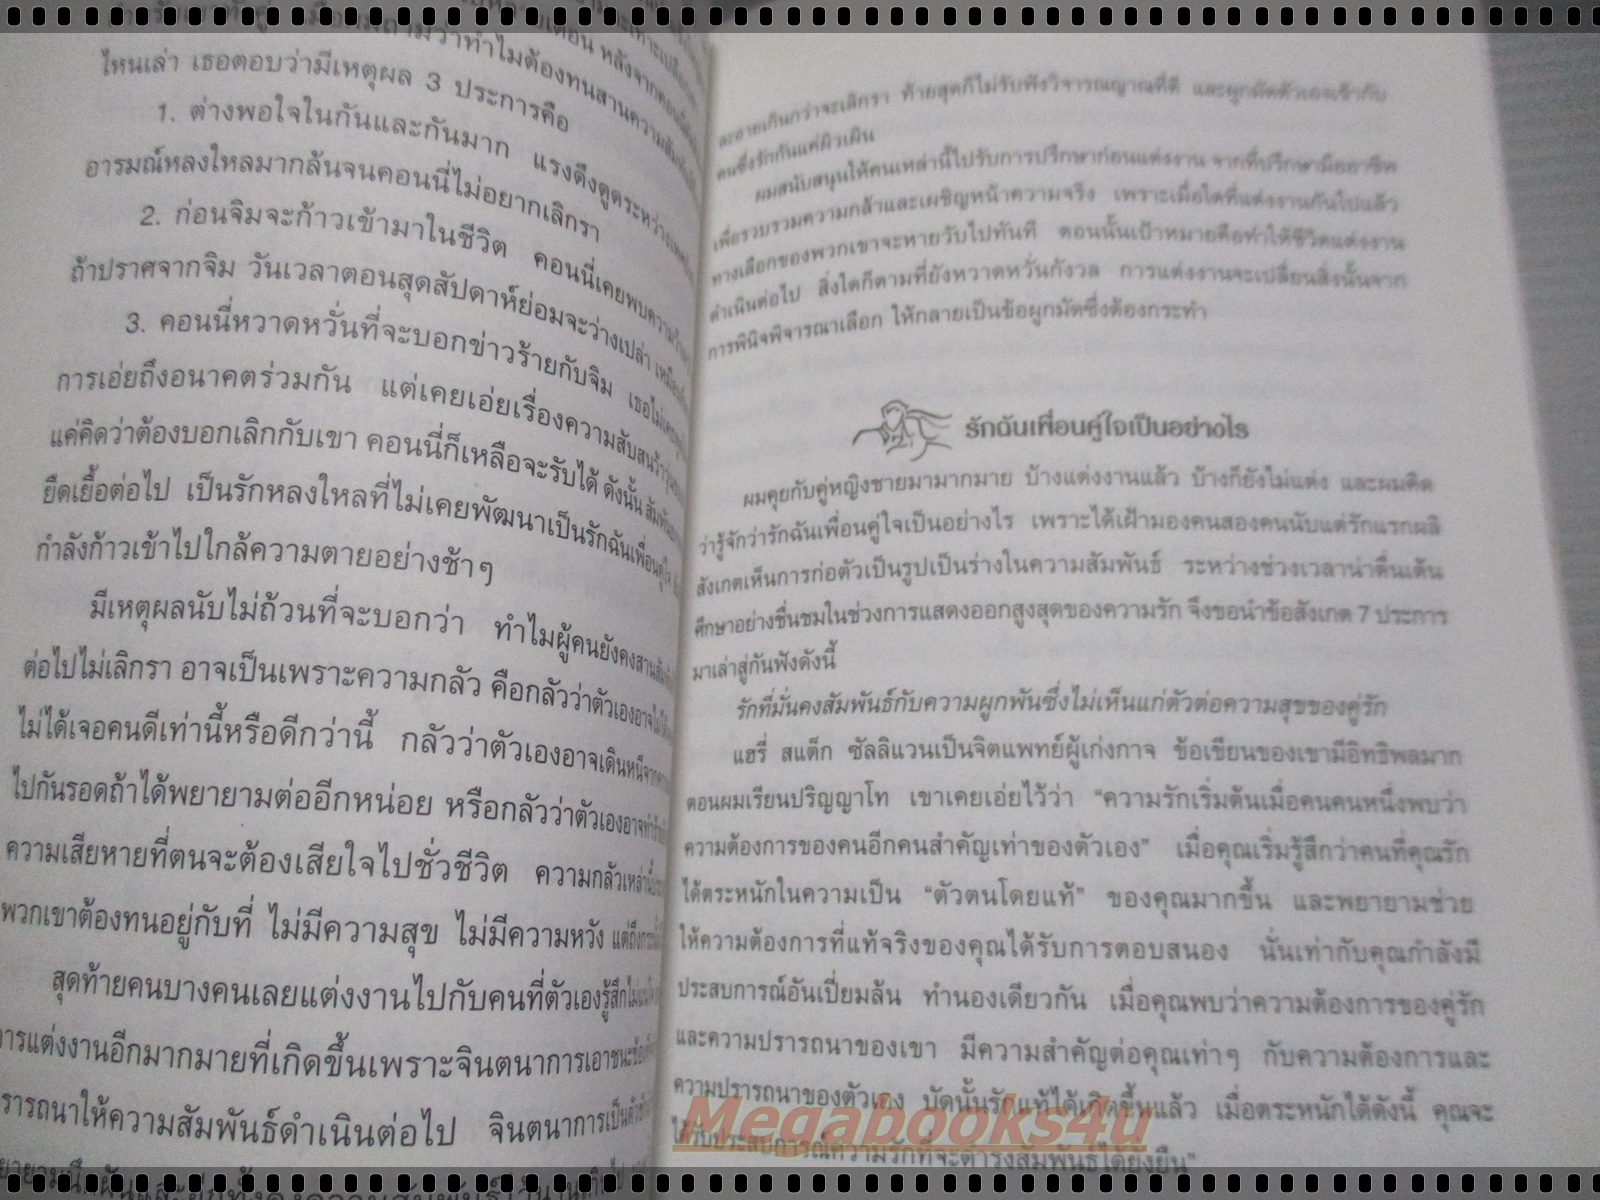 ไหนเล่า เธอตอบว่ามีเหตุผล 3 ประการคือ
1. ต่างพอใจในกันและกันมาก แรงดึงดูดระหว่าง
อารมณ์หลงใหลมากล้นจนคอนนี่ไม่อยากเลิกรา
2. ก่อนจิมจะก้าวเข้ามาในชีวิต คอนนี่เคยพบความ
ถ้าปราศจากจิม วันเวลาตอนสุดสัปดาห์ย่อมจะว่างเปล่า
3. คอนนี่หวาดหวั่นที่จะบอกข่าวร้ายกับจิม
การเอ่ยถึงอนาคตร่วมกัน แต่เคยเอ่ยเรื่องความสับสน
แค่คิดว่าต้องบอกเลิกกับเขา คอนนี่ก็เหลือจะรับได้ ดังนั้น
ยืดเยื้อต่อไป เป็นรักหลงใหลที่ไม่เคยพัฒนาเป็นรักฉันเพื่อนคู่ใจ
กำลังก้าวเข้าไปใกล้ความตายอย่างช้าๆ
มีเหตุผลนับไม่ถ้วนที่จะบอกว่า ทำไมผู้คนยังคงสาน
ต่อไปไม่เลิกรา อาจเป็นเพราะความกลัว คือกลัวว่าตัวเองอาจ
ไม่ได้เจอคนดีเท่านี้หรือดีกว่านี้ กลัวว่าตัวเองอาจเดินหนีจาก
ไปกันรอดถ้าได้พยายามต่ออีกหน่อย หรือกลัวว่าตัวเองอาจ
ความเสียหายที่ตนจะต้องเสียใจไปชั่วชีวิต ความกลัวเหล่านี้
พวกเขาต้องทนอยู่กับที่ ไม่มีความสุข ไม่มีความหวัง
สุดท้ายคนบางคนเลยแต่งงานไปกับคนที่ตัวเองรู้สึก
การแต่งงานอีกมากมายที่เกิดขึ้นเพราะจินตนาการเอาชนะ
รารถนาให้ความสัมพันธ์ดำเนินต่อไป จินตนาการเป็น
ละอายเกินกว่าจะเลิกรา ท้ายสุดก็ไม่รับฟังวิจารณญาณที่ดี และผูกมัดตัวเองเข้ากับ
คนซึ่งรักกันแค่ผิวเผิน
ผมสนับสนุนให้คนเหล่านี้ไปรับการปรึกษาก่อนแต่งงาน จากที่ปรึกษามืออาชีพ
เพื่อรวบรวมความกล้าและเผชิญหน้าความจริง เพราะเมื่อใดที่แต่งงานกันไปแล้ว
ทางเลือกของพวกเขาจะหายวับไปทันที ตอนนั้นเป้าหมายคือทำให้ชีวิตแต่งงาน
ดำเนินต่อไป สิ่งใดก็ตามที่ยังหวาดหวั่นกังวล การแต่งงานจะเปลี่ยนสิ่งนั้นจาก
การพินิจพิจารณาเลือก ให้กลายเป็นข้อผูกมัดซึ่งต้องกระทำ
รักฉันเพื่อนคู่ใจเป็นอย่างไร
ผมคุยกับคู่หญิงชายมามากมาย บ้างแต่งงานแล้ว บ้างก็ยังไม่แต่ง และผมคิด
ว่ารู้จักว่ารักฉันเพื่อนคู่ใจเป็นอย่างไร เพราะได้เฝ้ามองคนสองคนนับแต่รักแรกผลิ
สังเกตเห็นการก่อตัวเป็นรูปเป็นร่างในความสัมพันธ์ ระหว่างช่วงเวลาน่าตื่นเต้น
ศึกษาอย่างชื่นชมในช่วงการแสดงออกสูงสุดของความรัก จึงขอนำข้อสังเกต 7 ประการ
มาเล่าสู่กันฟังดังนี้
รักที่มั่นคงสัมพันธ์กับความผูกพันซึ่งไม่เห็นแก่ตัวต่อความสุขของคู่รัก
แฮรี่ สแต็ก ซัลลิแวนเป็นจิตแพทย์ผู้เก่งกาจ ข้อเขียนของเขามีอิทธิพลมาก
ตอนผมเรียนปริญญาโท เขาเคยเอ่ยไว้ว่า “ความรักเริ่มต้นเมื่อคนคนหนึ่งพบว่า
ความต้องการของคนอีกคนสำคัญเท่าของตัวเอง” เมื่อคุณเริ่มรู้สึกว่าคนที่คุณรัก
ได้ตระหนักในความเป็น “ตัวตนโดยแท้” ของคุณมากขึ้น และพยายามช่วย
ให้ความต้องการที่แท้จริงของคุณได้รับการตอบสนอง นั่นเท่ากับคุณกำลังมี
ประสบการณ์อันเปี่ยมล้น ทำนองเดียวกัน เมื่อคุณพบว่าความต้องการของคู่รัก
และความปรารถนาของเขา มีความสำคัญต่อคุณเท่าๆ กับความต้องการและ
ความปรารถนาของตัวเอง บัดนั้นรักแท้ได้เกิดขึ้นแล้ว เมื่อตระหนักได้ดังนี้ คุณจะ
ได้รับประสบการณ์ความรักที่จะดำรงสัมพันธ์ได้ยั่งยืน”
Megabooks4u